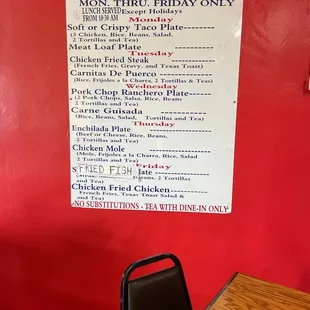 MON. THRU. FRIDAY ONLY
LUNCH SERVED Except Holidays
FROM 10:30 AM
Monday
Soft or Crispy Taco Plate
(3 Chicken, Rice, Beans, Salad,
2 Tortillas and Tea)
Meat Loaf Plate
Tuesday
Chicken Fried Steak
(French Fries, Gravy, and Texas Toast)
Carnitas De Puerco
(Rice, Frijoles a la Charra, 2 Tortillas & Tea)
Wednesday
Pork Chop Ranchero Plate
(2 Pork Chops, Salsa, Rice, Beans
2 Tortillas and Tea)
Carne Guisada
(Rice, Beans, Salad, Tortillas and Tea)
Thursday
Enchilada Plate
(Beef or Cheese, Rice, Beans,
2 Tortillas and Tea)
Chicken Mole
(Mole, Frijoles a la Charra, Rice, Salad
2 Tortillas and Tea)
Friday
S FRIED FISH late
Beans, 2 Tortillas
and Tea)
Chicken Fried Chicken
French Fries, Texas Toast Salad &
and Tea)
NO SUBSTITUTIONS - TEA WITH DINE-IN ONLY